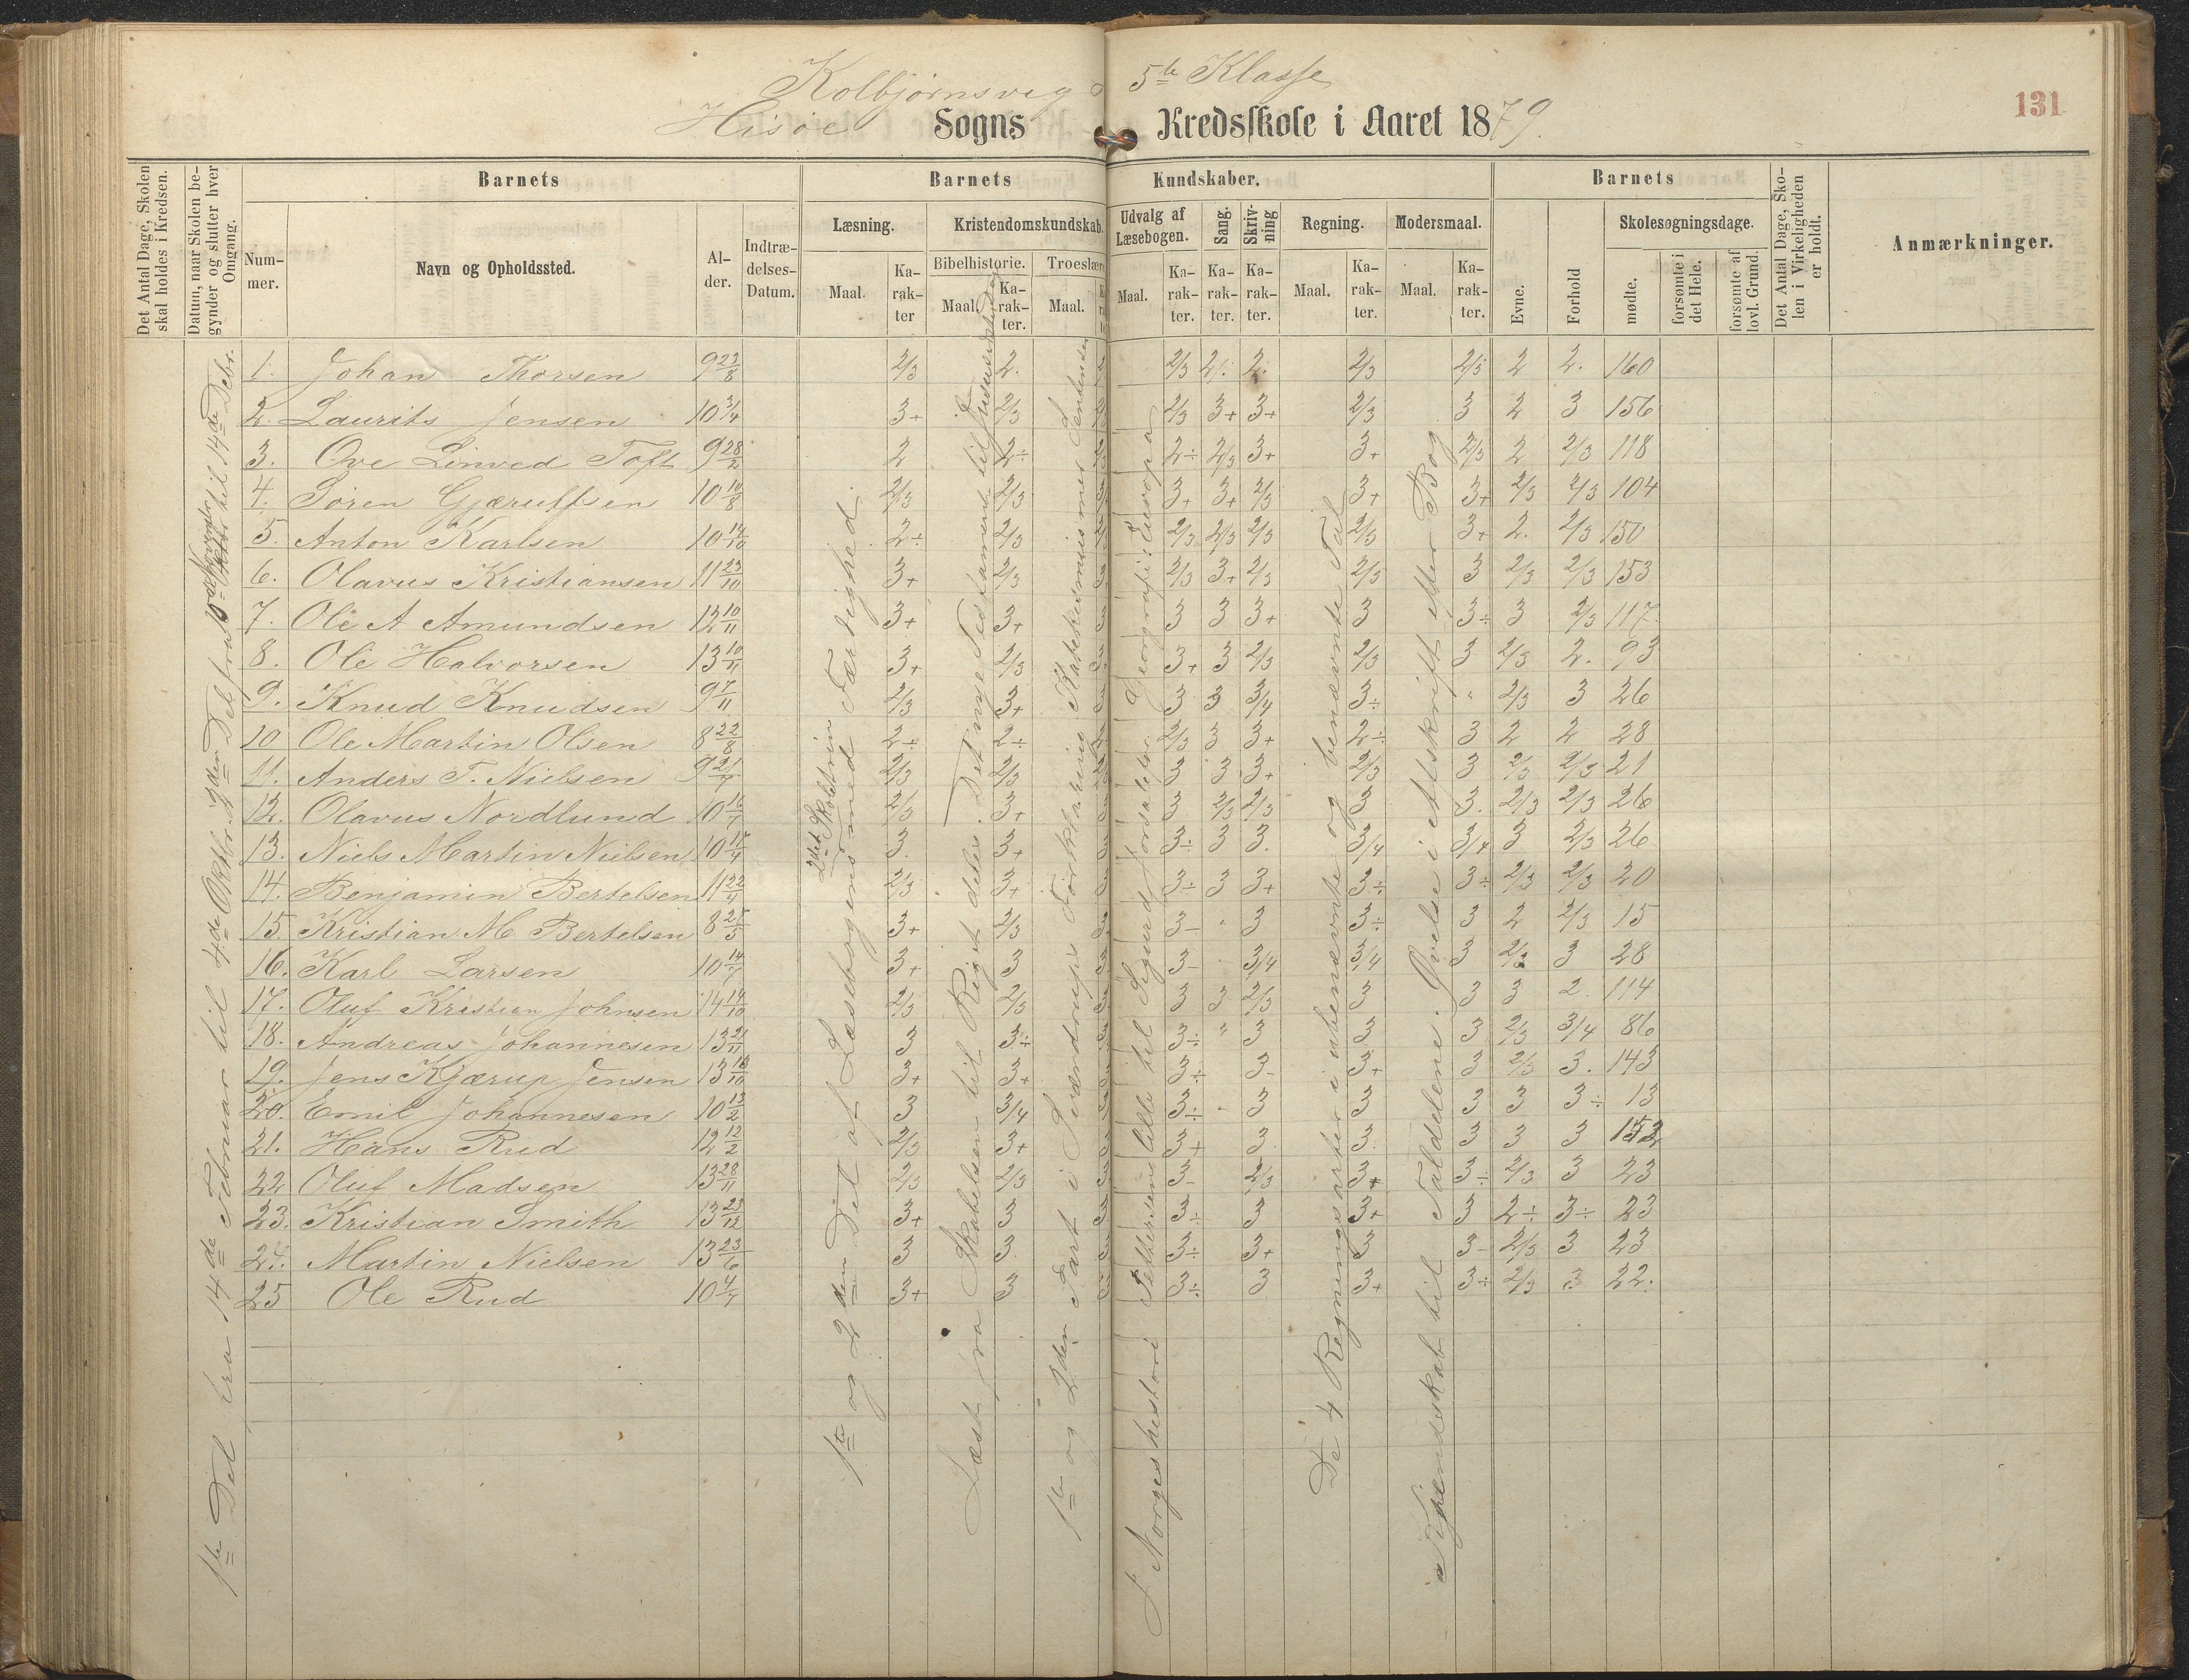 Kolbjørnsvig 5te Klasse
Hisøe Sogns Kredsskole i Aaret 1879.
131
Det Antal Dage, Skolen skal holdes i Kredsen.
Datum, naar Skolen begynder og slutter hver Omgang.
Barnets
Num-mer.
Navn og Opholdssted.
Al-der.
Indtræ-delses-Datum.
Barnets Kundskaber.
Læsning.
Maal.
Ka-rak-ter
Kristendomskundskab.
Bibelhistorie.
Maal.
Ka-rak-ter.
Troeslære
Maal.
Udvalg af Læsebogen.
Maal.
Ka-rak-ter.
Sang.
Ka-rak-ter.
Skriv-ning
Ka-rak-ter.
Regning.
Maal.
Ka-rak-ter.
Modersmaal.
Maal.
Ka-rak-ter.
Barnets
Evne.
Forhold
Skolesøgningsdage.
mødte.
forsømte i det Hele.
forsømte af lovl. Grund.
Det Antal Dage, Sko-len i Virkeligheden er holdt.
Anmærkninger.
1. Johan Thorsen 9 22/8 2/3 2. 2/3 2÷ 2. 2/3 2/3 2 2. 160
2. Laurits Jensen 10 3/4 3+ 2/3 2/3 3+ 3+ 2/3 3 2 3 156
3. Ove Linved Toft 9 28/2 2 2÷ 2÷ 2/3 3+ 3+ 2/3 2 2/3 118
4. Søren Gjærulfsen 10 10/8 2/3 2/3 3+ 3+ 2/3 3+ 3+ 2/3 2/3 104
5. Anton Karlsen 10 14/10 2÷ 2/3 2/3 2/3 2/3 2/3 3+ 2. 2/3 150
6. Olavus Kristiansen 11 23/10 3+ 2/3 2/3 3+ 2/3 2/3 3 2/3 2/3 153
7. Ole A Amundsen 12 10/11 3+ 3+ 3 3 3+ 3 3÷ 3 2/3 117.
8. Ole Halvorsen 13 10/11 3+ 2/3 3+ 3 2/3 2/3 3 2/3 2. 93
9. Knud Knudsen 9 7/11 2/3 3+ 3 3 3/4 3÷ " 2/3 3 26
10 Ole Martin Olsen 8 22/8 2÷ 2÷ 2/3 3 3+ 2÷ 3 2 2 28
11. Anders T. Nielsen 9 21/7 2/3 2/3 3 3 3+ 2/3 3 2/3 2/3 21
12. Olavus Nordlund 10 16/7 2/3 3+ 3 2/3 2/3 3 3. 2/3 2/3 26
13. Niels Martin Nielsen 10 17/4 3. 3+ 3÷ 3 3. 3/4 3/4 3 2/3 26
14. Benjamin Bertelsen 11 22/4 2/3 3+ 3÷ 3 3+ 3÷ 3÷ 2/3 2/3 20
15. Kristian M Bertelsen 8 25/5 3+ 2/3 3- " 3 3÷ 3 2 2/3 15
16. Karl Larsen 10 14/7 3+ 3 3- 3/4 3/4 3 2/3 3 28
17. Oluf Kristian Johnsen 14 14/10 2/3 2/3 3 3 2/3 3 3 3 2. 114
18. Andreas Johannesen 13 21/11 3 3÷ 3÷ " 3 3 3 2/3 3/4 86
19. Jens Kjærup Jensen 13 18/10 3+ 3+ 3÷ 3- 3+ 3 2/3 3. 143
20. Emil Johannesen 10 13/2 3 3/4 3÷ " 3 3 3 3 3÷ 13
21. Hans Rud 12 12/2 2/3 3+ 3+ 3 3. 3 3 3 152
22 Oluf Madsen 13 28/11 2/3 2/3 3- 2/3 3+ 3÷ 2/3 3 23
23. Kristian Smith 13 23/12 3+ 3 3÷ 3 3+ 3 2÷ 3÷ 23
24. Martin Nielsen 13 23/6 3 3. 3÷ 3+ 3 3- 2/3 3 23
25 Ole Rud 10 4/7 3+ 3 3÷ 3 3+ 3÷ 2/3 3 22.
1te Del fra 14de Februar til 4de Oktbr. 2den Del fra til 14de Debr.
2det Skoletrin
1te og 2den Del af Læsebogen med Færdighed.
Læst fra Skabelsen til Riget deles. Det nye Testamente til
1te og 2den Part i Sværdrups Forklaring. Katekismus med
I Norgeshistorie Pettersens lille til Sigurd Jorsalafar. Geografi: Europa
De 4 Regningsarter i ubenævnte og benævnte Tal
Kjendskab til Taldelene. Øvelse i Afskrift efter Bog